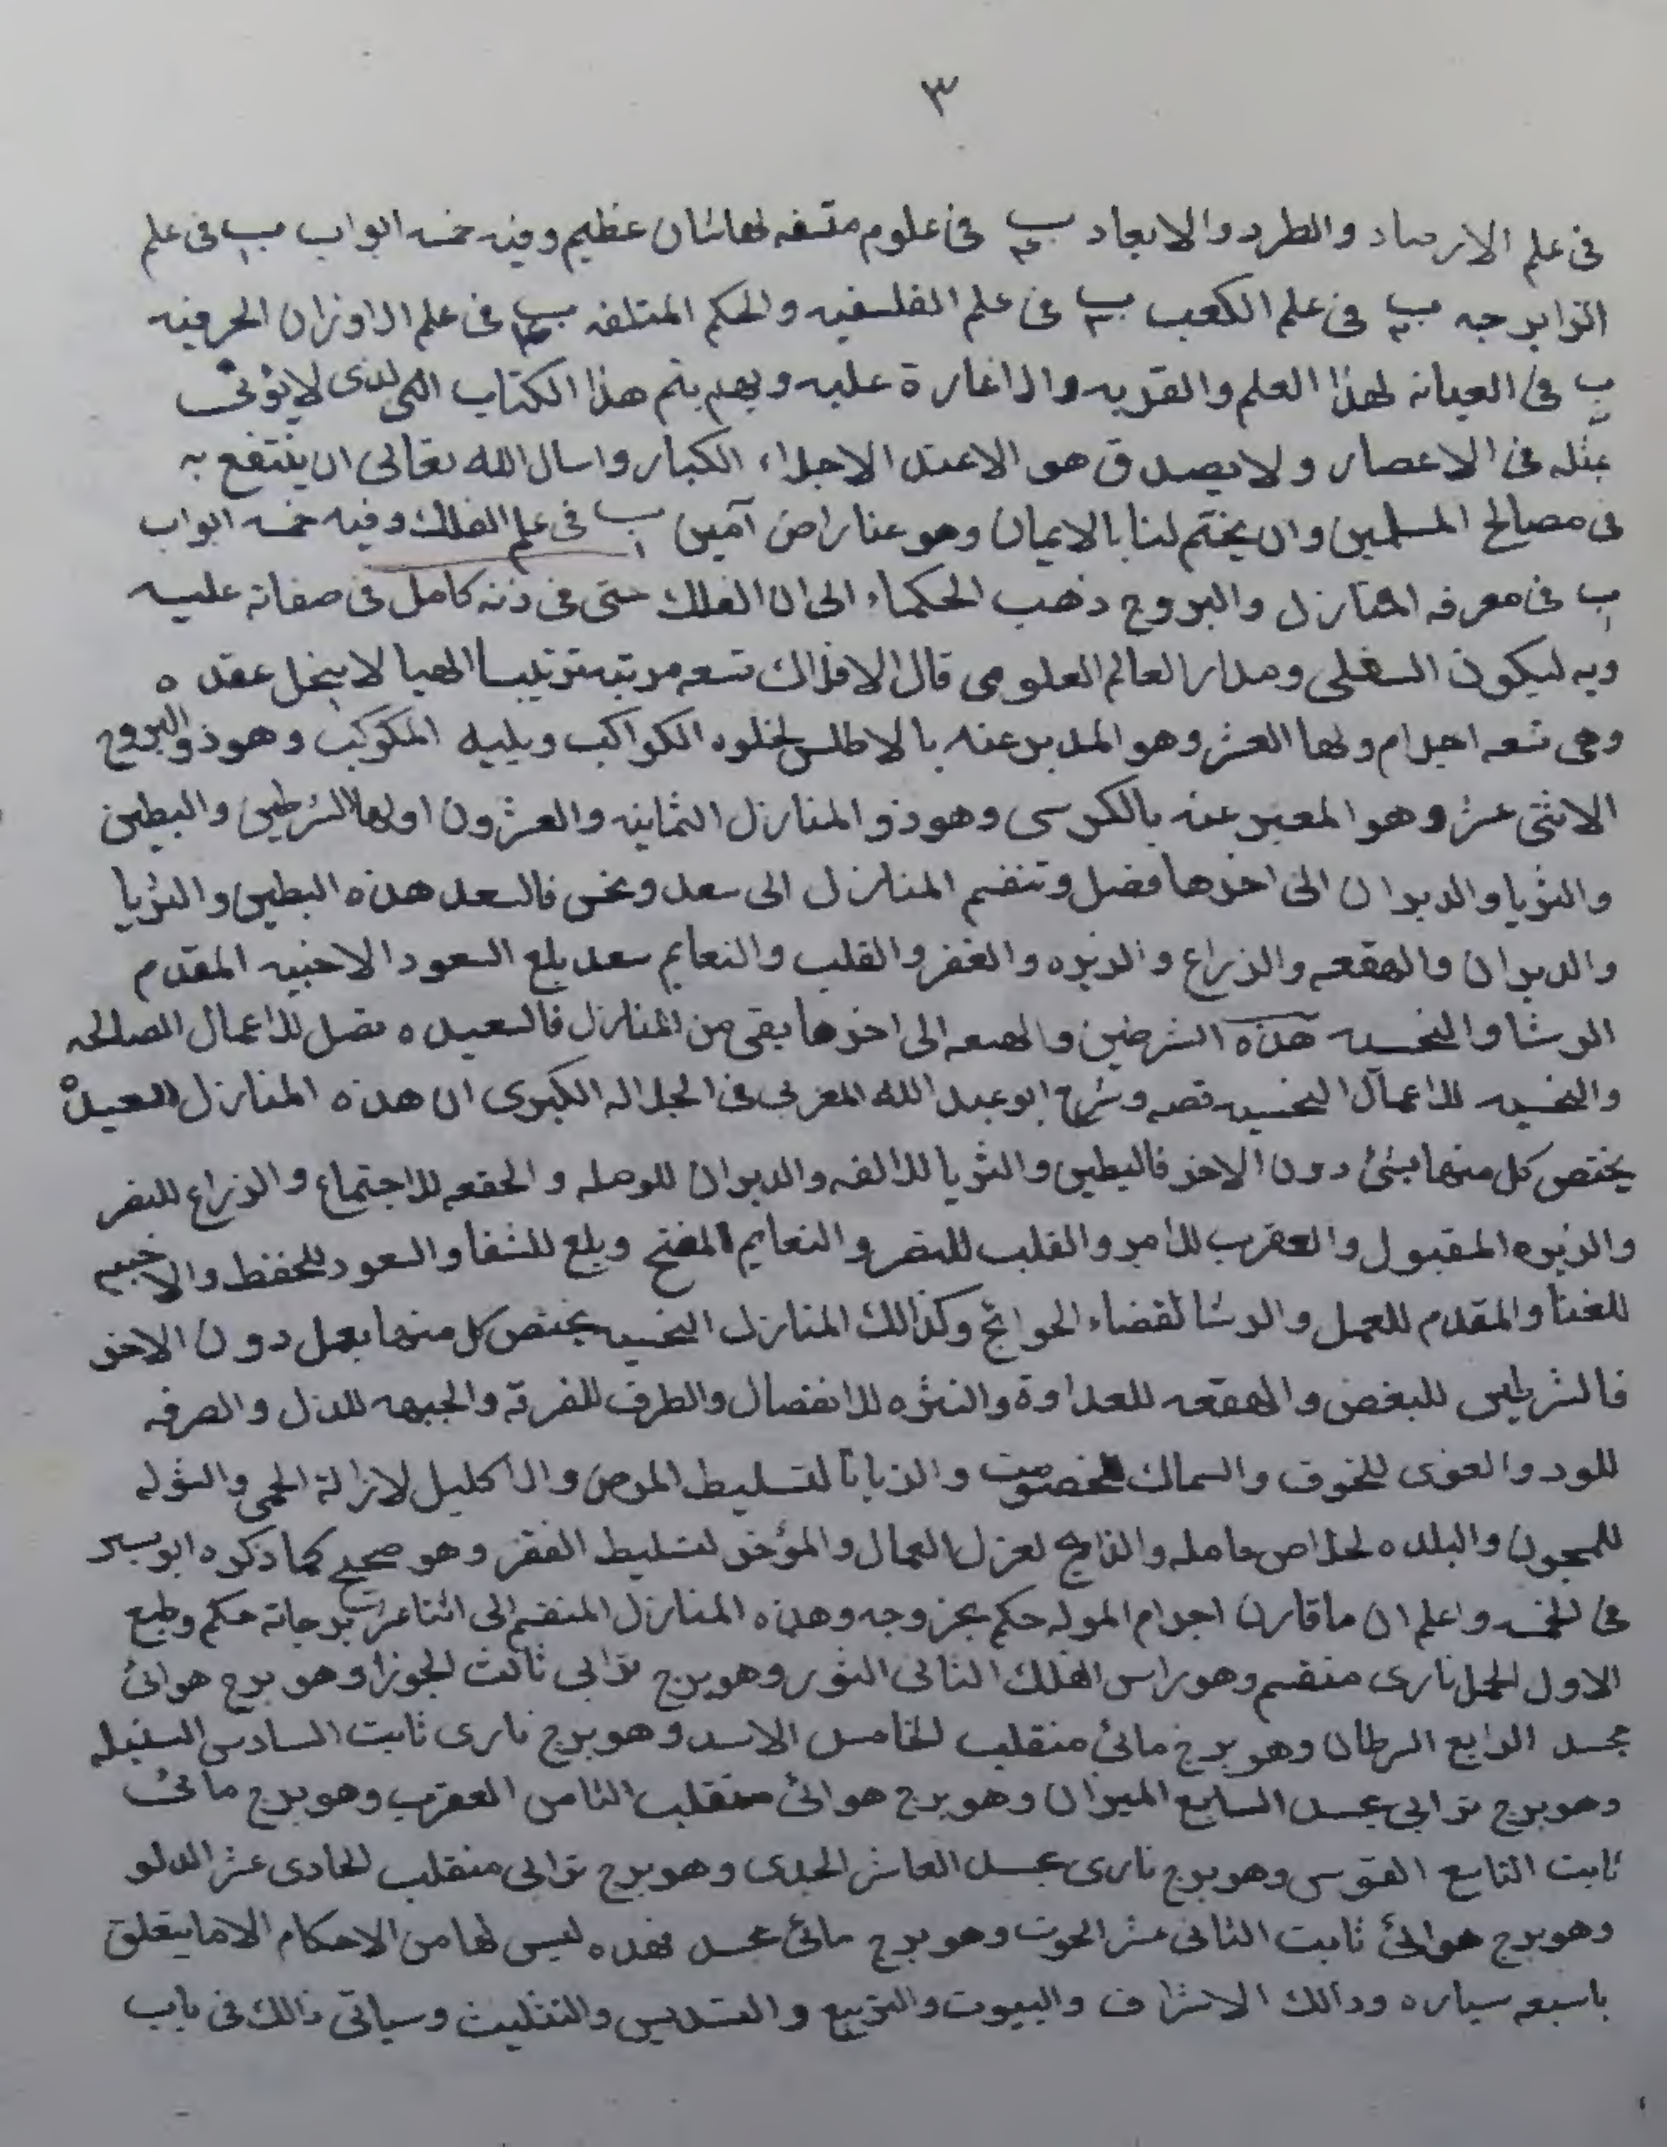 ٣
فى علم الارصاد والطرد والابعاد ب فى علوم متسفه لهاشان عظيم وفيه خمسه ابواب ب فى علم
الزايرجه ب فى علم الكعب ب فى علم الفلسفيه والحكم المتلفه ب فى علم الاوزان الحرفيه
ب فى الصيانه لهذا العلم والقريه والاغارة عليه وبهم يتم هذا الكتاب الذى لايؤتى
بمثله فى الاعصار ولا يصدق هو الاعند الاجلاء الكبار واسال الله تعالى ان ينتفع به
فى مصالح المسلمين وان يختم لنا بالايمان وهو عنا راض آمين ب فى علم الفلك وفيه خمسه ابواب
ب فى معرفه المنازل والبروج ذهب الحكماء الى ان الفلك حتى فى ذنه كامل فى صفاته عليه
وبه ليكون السفلى ومدار العالم العلومى قال الافلاك تسعه مرتبه ترتيبا الهيا لا ينحل عقده
وهى تسعه اجرام ولها العرش وهو المدبر عنه بالاطلس لخلوه الكواكب ويليه المكوكب وهو ذوالبروج
الاثنى عشر وهو المعبر عنه بالكرسى وهو ذو المنازل الثمانيه والعشرون اولها الشرطين والبطين
والثريا والدبران الى اخرها فصل وتنقسم المنازل الى سعد ونحس فالسعد هذه البطين والثريا
والدبران والهقعه والزراع والزبره والغفر والقلب والنعايم سعد بلع السعود الاخبيه المقدم
الرشا والنحسيه هذه الشرطين والهنعه الى اخرها بقى من المنازل فالسعيده تصل للاعمال الصالحه
والنحسيه للاعمال النحسيه قصه وشرح ابوعبد الله المغربى فى الجلاله الكبرى ان هذه المنازل السعيده
يختص كل منها بشئ دون الاخر فالبطين والثريا للالفه والدبران للوصله والحقعه للاجتماع والزراع للنصر
والزبره المقبول والعقرب للامر والقلب للنصر والنعايم المفتح وبلع للشفا والسعود للحفظ والاخبيه
للغنا والمقدم للعمل والرشا لقضاء الحوائج وكذالك المنازل النحسيه يختص كل منها بعمل دون الاخر
فالشرطين للبغض والهقعه للعداوة والنثره للانفصال والطرف للفرقة والجبهه للذل والصرفه
للود والعوى للخوف والسماك للخصومت والزبانا لتسليط المرض والاكليل لازالة الحمى والشوله
للمسجون والبلده لخلاص حامله والذابح لعزل العمال والمؤخر لتسليط الفقر وهو صحيح كما ذكره ابو
فى واعلم ان ما قارن اجرام الموله حكم بجزوجه وهذه المنازل المنقسم الى اثناعشر برجانة حكم وطبع
الاول الحمل نارى منقسم وهو راس الفلك الثانى الثور وهو برج ترابى ثالث الجوزا وهو برج هوائى
مجسد الرابع السرطان وهو برج مائى منقلب الخامس الاسد وهو برج نارى ثابت السادس السنبله
وهو برج ترابى مجسد السابع الميزان وهو برج هوائى منقلب الثامن العقرب وهو برج مائى
ثابت التاسع القوس وهو برج نارى مجسد العاشر الجدى وهو برج ترابى منقلب الحادى عشر الدلو
وهو برج هوائى ثابت الثانى عشر الحوت وهو برج مائى مجسد فهده ليس لها من الاحكام الا ما يتعلق
باسبعه سياره ودالك الاشراف والبيوت والتربيع والتسديس والتثليث وسياتى ذالك فى باب